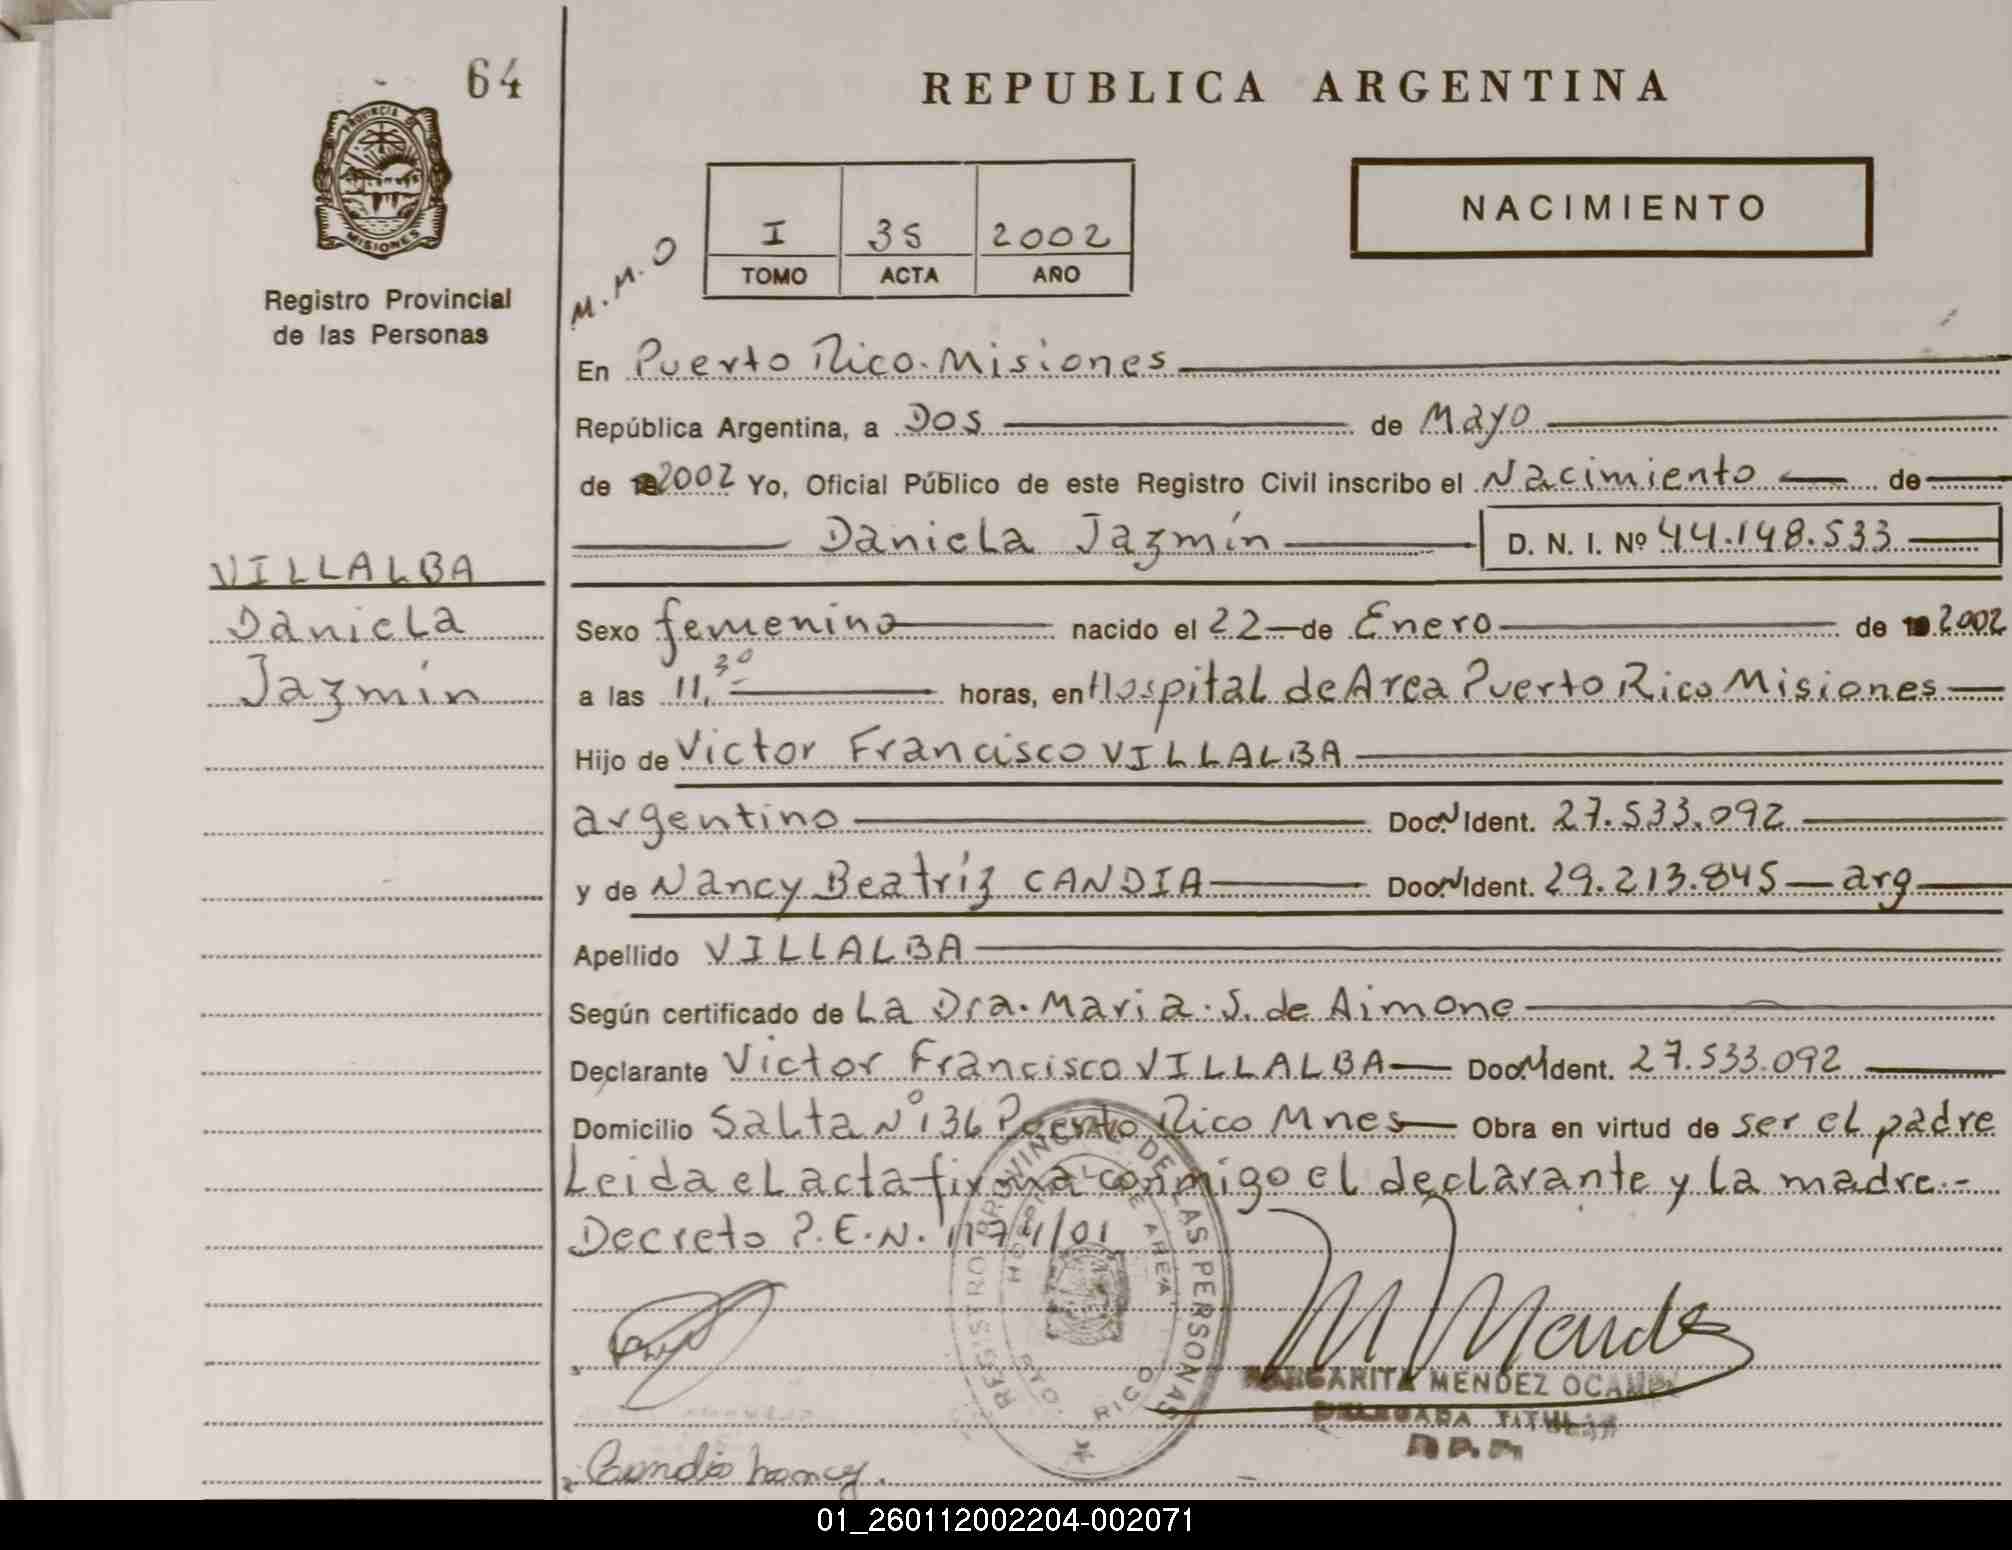 64
REPUBLICA ARGENTINA
PROVINCIA DE
MISIONES
Registro Provincial
de las Personas
I 35 2002
TOMO ACTA AÑO
NACIMIENTO
M.M.O
En Puerto Rico. Misiones
República Argentina, a Dos de Mayo
de 2002 Yo, Oficial Público de este Registro Civil inscribo el Nacimiento de
Daniela Jazmín D. N. I. Nº 44.148.533
VILLALBA
Daniela
Jazmín
Sexo femenino nacido el 22 de Enero de 2002
a las 11,30 horas, en Hospital de Area Puerto Rico Misiones
Hijo de Victor Francisco VILLALBA
argentino Doc. N Ident. 27.533.092
y de Nancy Beatríz CANDIA Doc. N Ident. 29.213.845 arg
Apellido VILLALBA
Según certificado de La Dra. Maria. S. de Aimone
Declarante Victor Francisco VILLALBA Doc. N Ident. 27.533.092
Domicilio Salta Nº 136 Puerto Rico Mnes Obra en virtud de ser el padre
Leida el acta firma conmigo el declarante y la madre.-
Decreto P.E.N. 1174/01
REGISTRO PROVINCIAL DE LAS PERSONAS
HOSPITAL DE AREA
PTO. RICO
M Mendez
MARGARITA MENDEZ OCAMPO
DELEGADA TITULAR
R.P.P.
Candia nancy.
01_260112002204-002071